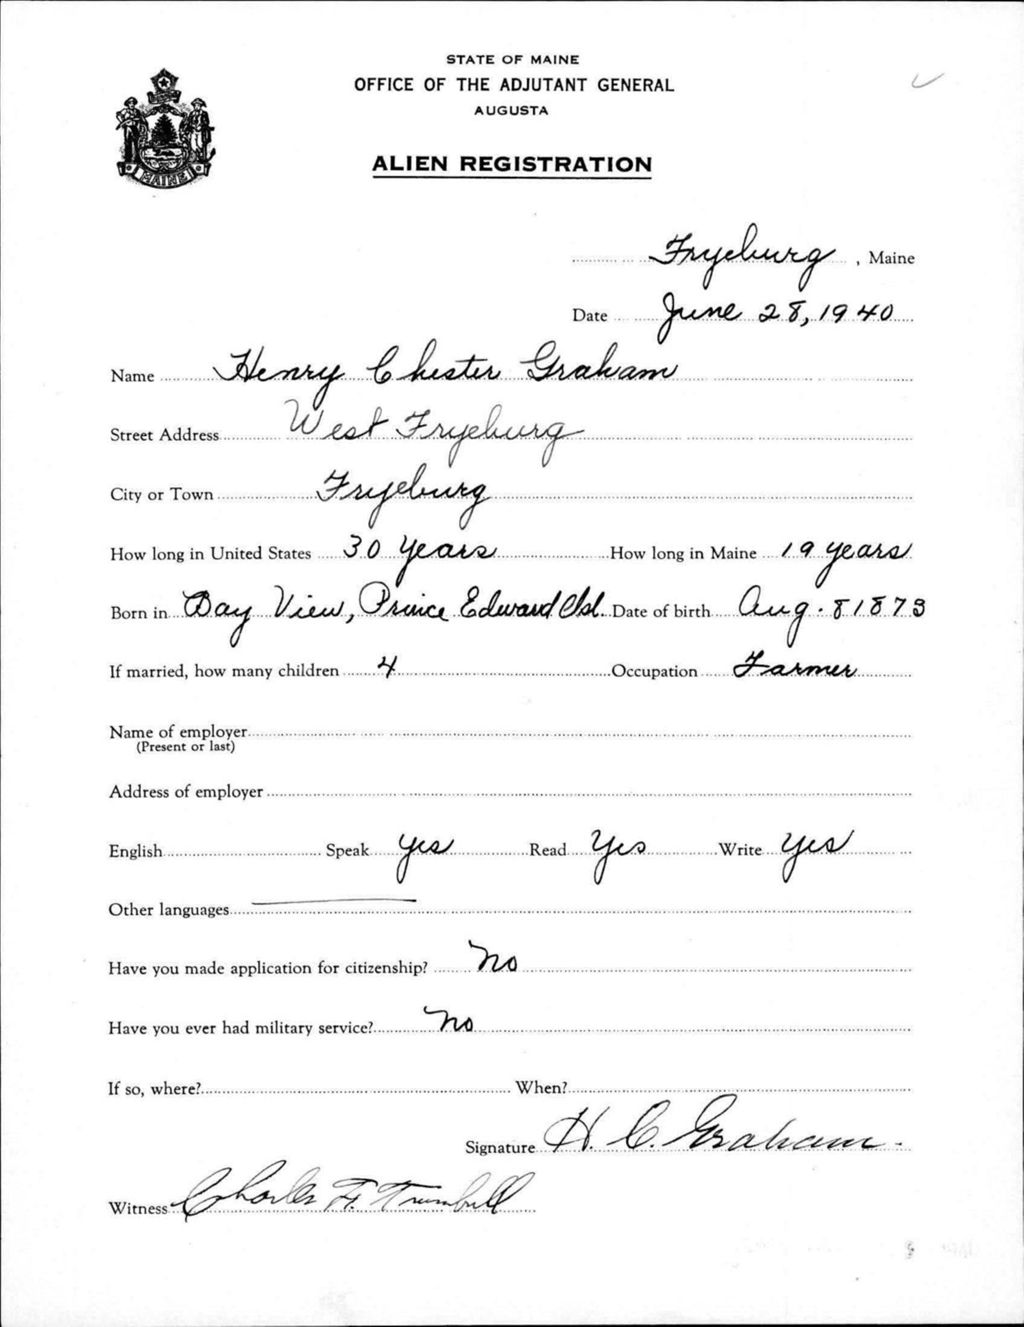 STATE OF MAINE
OFFICE OF THE ADJUTANT GENERAL
AUGUSTA
ALIEN REGISTRATION
MAINE
Fryeburg, Maine
Date June 28, 1940
Name Henry Chester Graham
Street Address West Fryeburg
City or Town Fryeburg
How long in United States 30 Years How long in Maine 19 years
Born in Bay View, Prince Edward Isl. Date of birth Aug. 8 1873
If married, how many children 4 Occupation Farmer
Name of employer
(Present or last)
Address of employer
English Speak yes Read Yes Write Yes
Other languages
Have you made application for citizenship? No
Have you ever had military service? No
If so, where? When?
Signature H. C. Graham
Witness Charles F. Trumbull